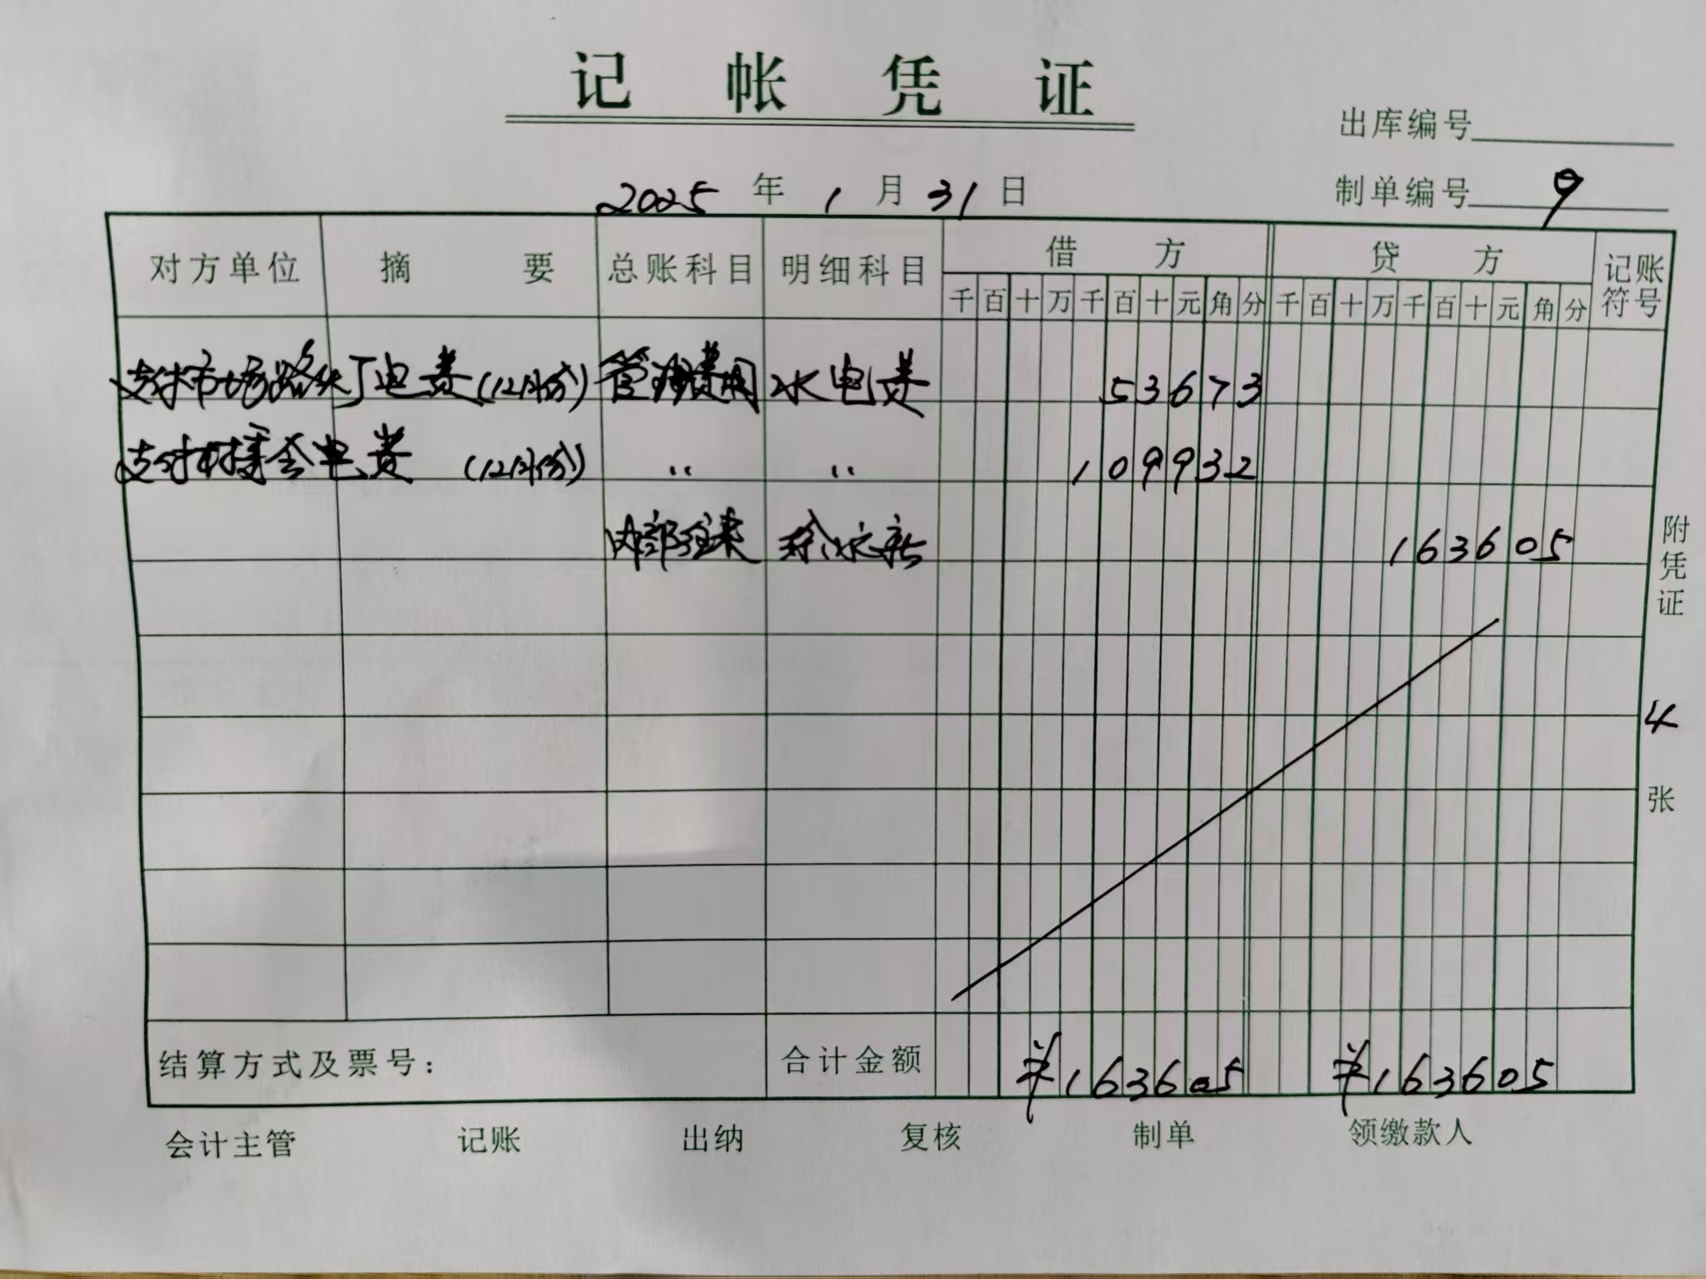 记帐凭证
出库编号
制单编号 9
2025年1月31日
对方单位 摘要 总账科目 明细科目 借方 贷方 记账符号
千百十万千百十元角分 千百十万千百十元角分
支付市场路灯电费(12月份) 管理费用 水电费 53673
支付村委会电费 (12月份) 〃 〃 109932
内部往来 徐永新 163605
附凭证 4 张
结算方式及票号: 合计金额 ¥163605 ¥163605
会计主管 记账 出纳 复核 制单 领缴款人